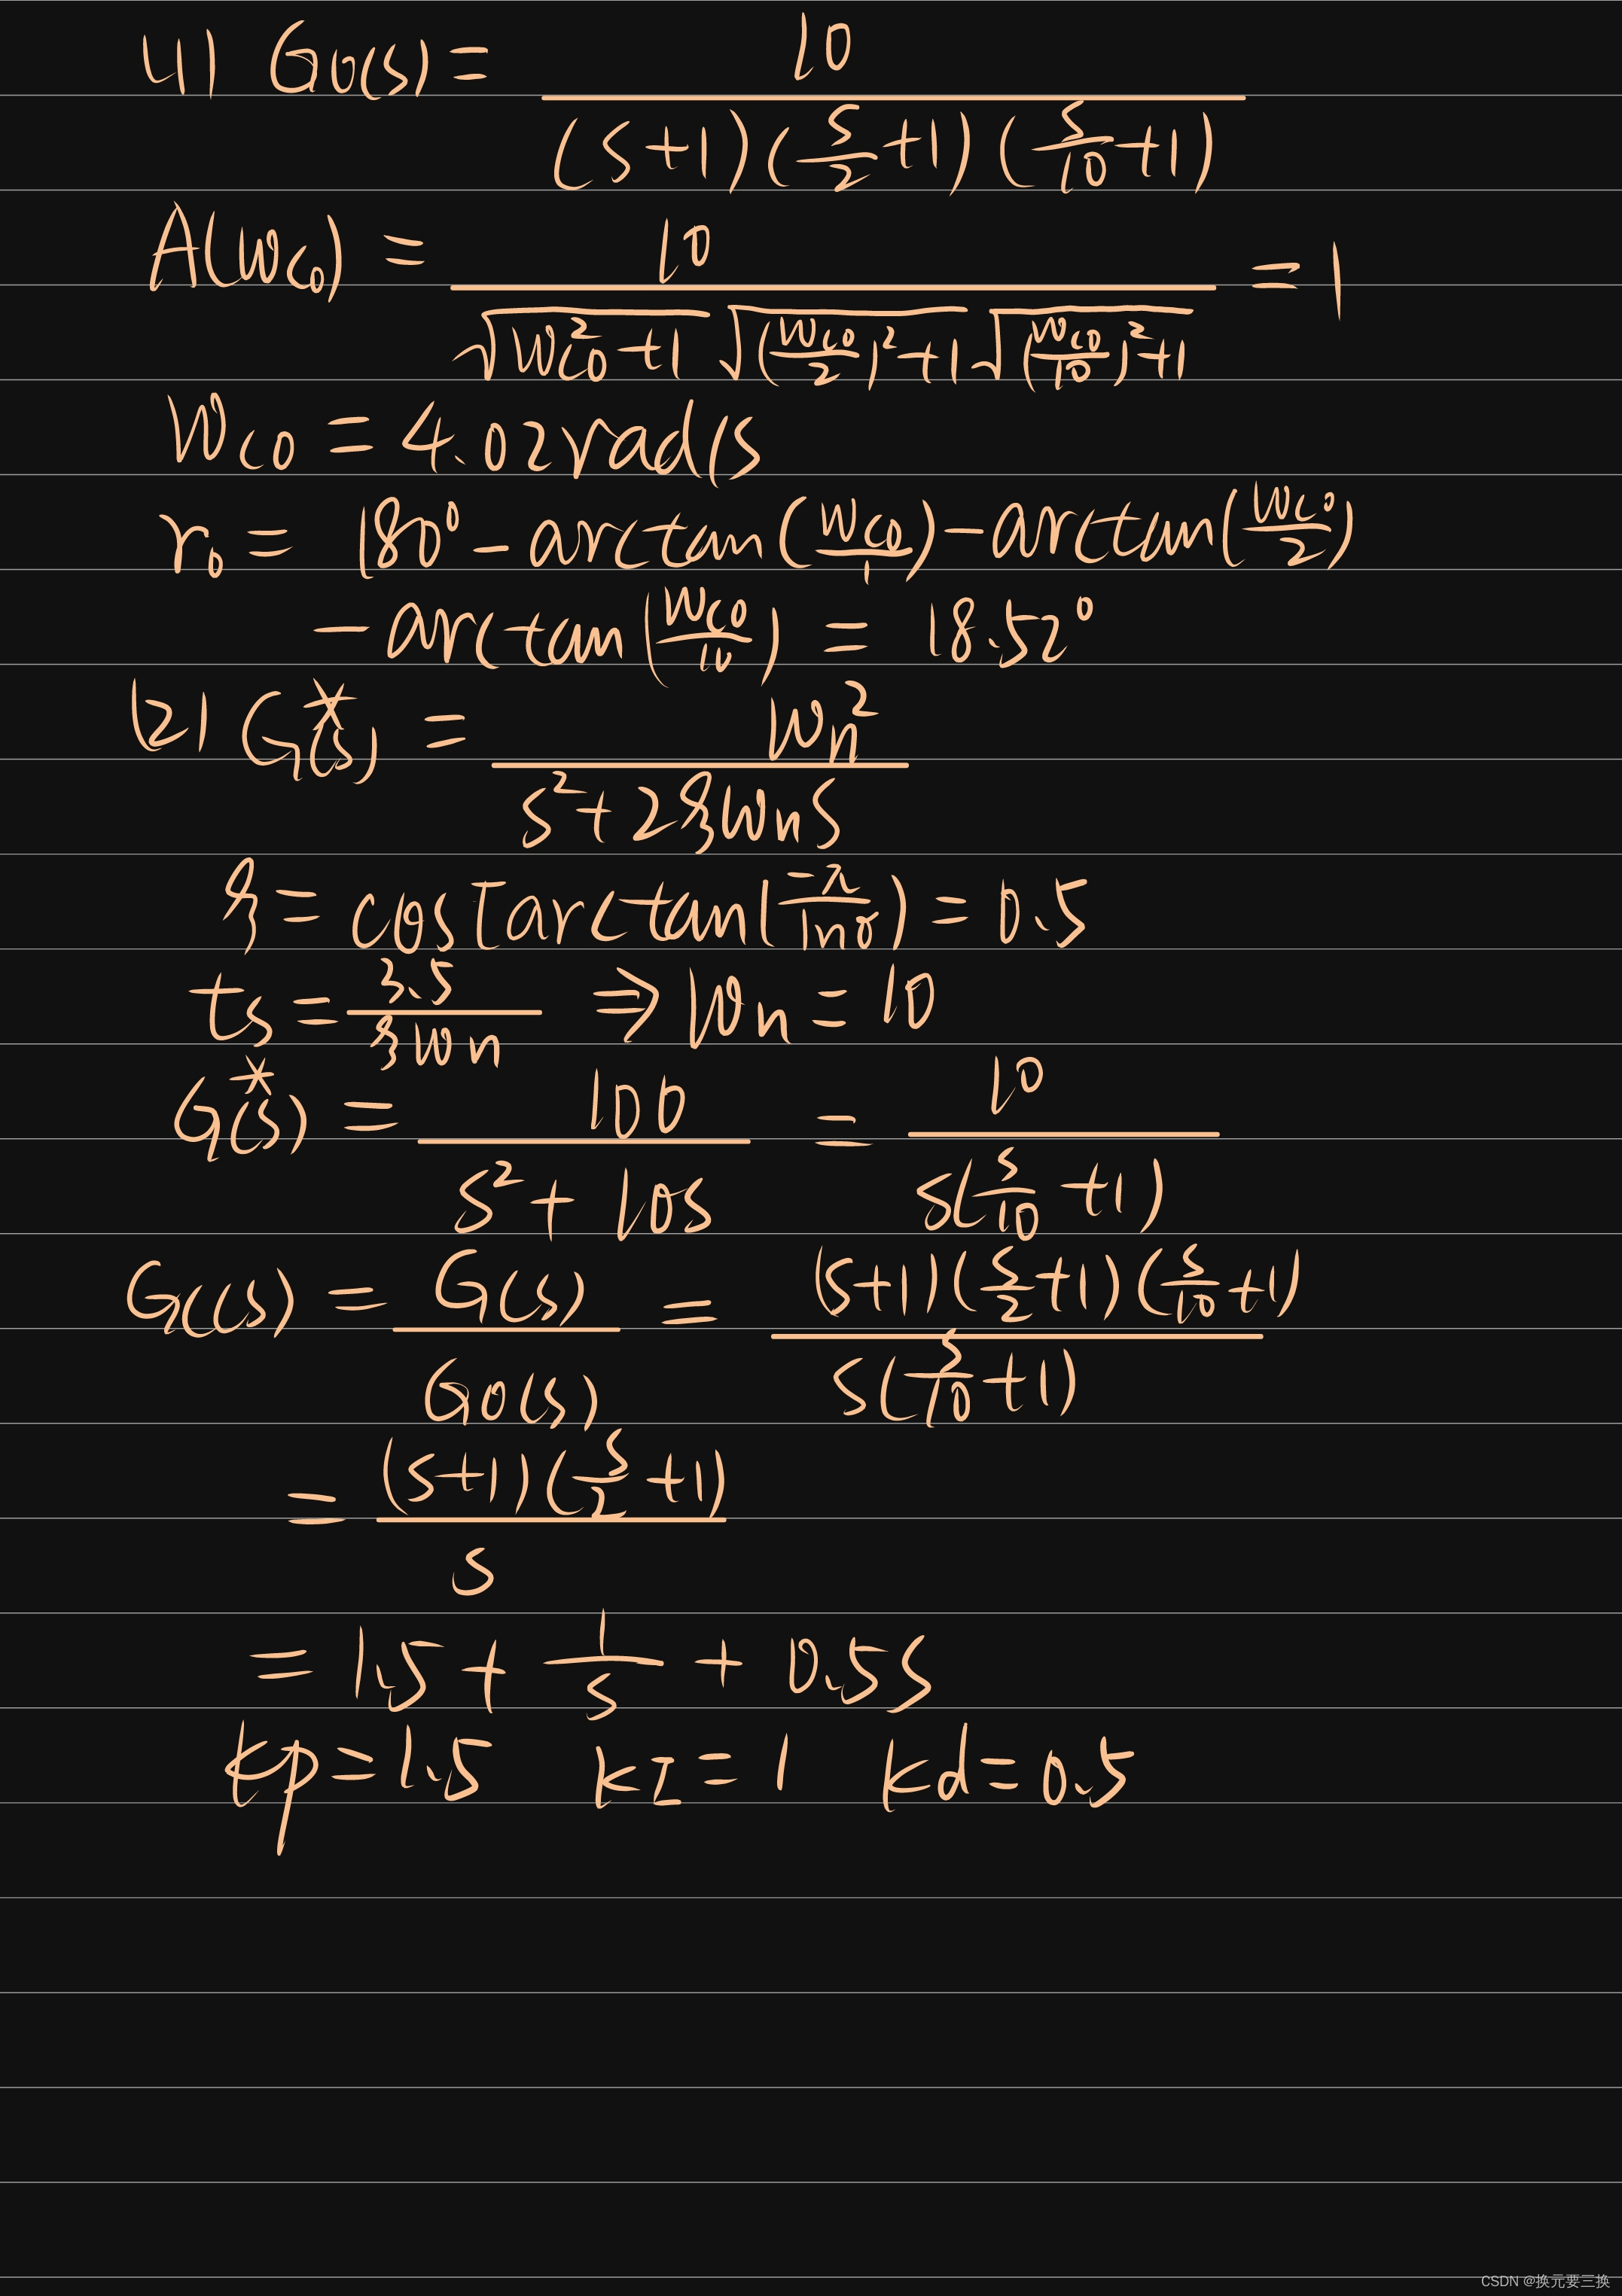 (1) G0(s) = 10 / (s+1)(s/2+1)(s/10+1)
A(Wc0) = 10 / √(Wc0²+1) √((Wc0/2)²+1) √((Wc0/10)²+1) = 1
Wc0 = 4.02rad/s
r₀ = 180° - arctan(Wc0/1) - arctan(Wc0/2)
- arctan(Wc0/10) = 18.52°
(2) G*(s) = Wn² / s²+2ξWns
ξ = cos[arctan(-π/lnσ) = 0.5
ts = 3.5/ξWn ⇒ Wn = 10
G*(s) = 100 / s²+10s = 10 / s(s/10+1)
Gc(s) = G(s)/G0(s) = (s+1)(s/2+1)(s/10+1) / s(s/10+1)
= (s+1)(s/2+1) / s
= 1.5 + 1/s + 0.5s
kp=1.5 kI=1 kd=0.5
CSDN @换元要三换